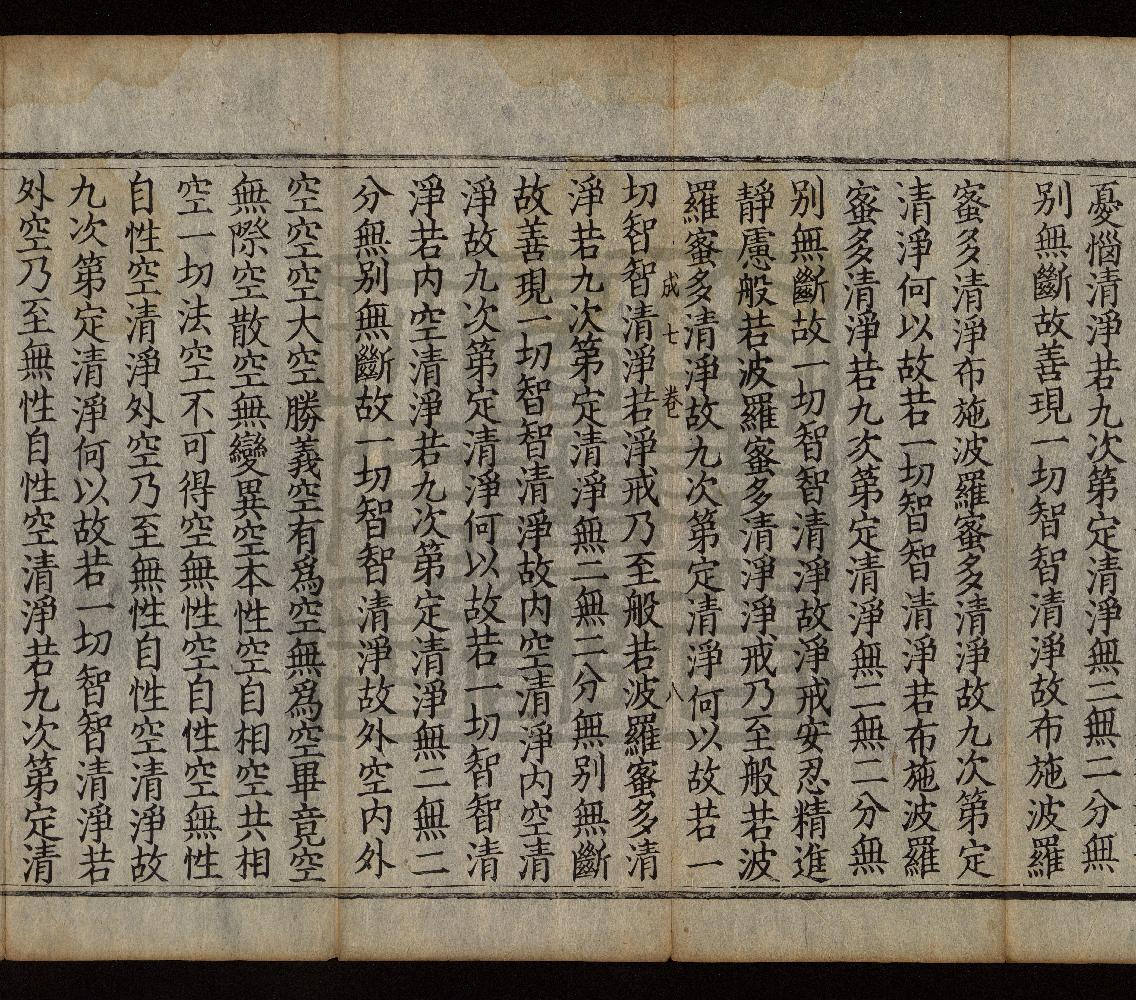 憂惱清淨若九次第定清淨無二無二分無
別無斷故善現一切智智清淨故布施波羅
蜜多清淨布施波羅蜜多清淨故九次第定
清淨何以故若一切智智清淨若布施波羅
蜜多清淨若九次第定清淨無二無二分無
別無斷故一切智智清淨故淨戒安忍精進
靜慮般若波羅蜜多清淨淨戒乃至般若波
羅蜜多清淨故九次第定清淨何以故若一
成七卷 八
切智智清淨若淨戒乃至般若波羅蜜多清
淨若九次第定清淨無二無二分無別無斷
故善現一切智智清淨故內空清淨內空清
淨故九次第定清淨何以故若一切智智清
淨若內空清淨若九次第定清淨無二無二
分無別無斷故一切智智清淨故外空內外
空空空大空勝義空有爲空無爲空畢竟空
無際空散空無變異空本性空自相空共相
空一切法空不可得空無性空自性空無性
自性空清淨外空乃至無性自性空清淨故
九次第定清淨何以故若一切智智清淨若
外空乃至無性自性空清淨若九次第定清